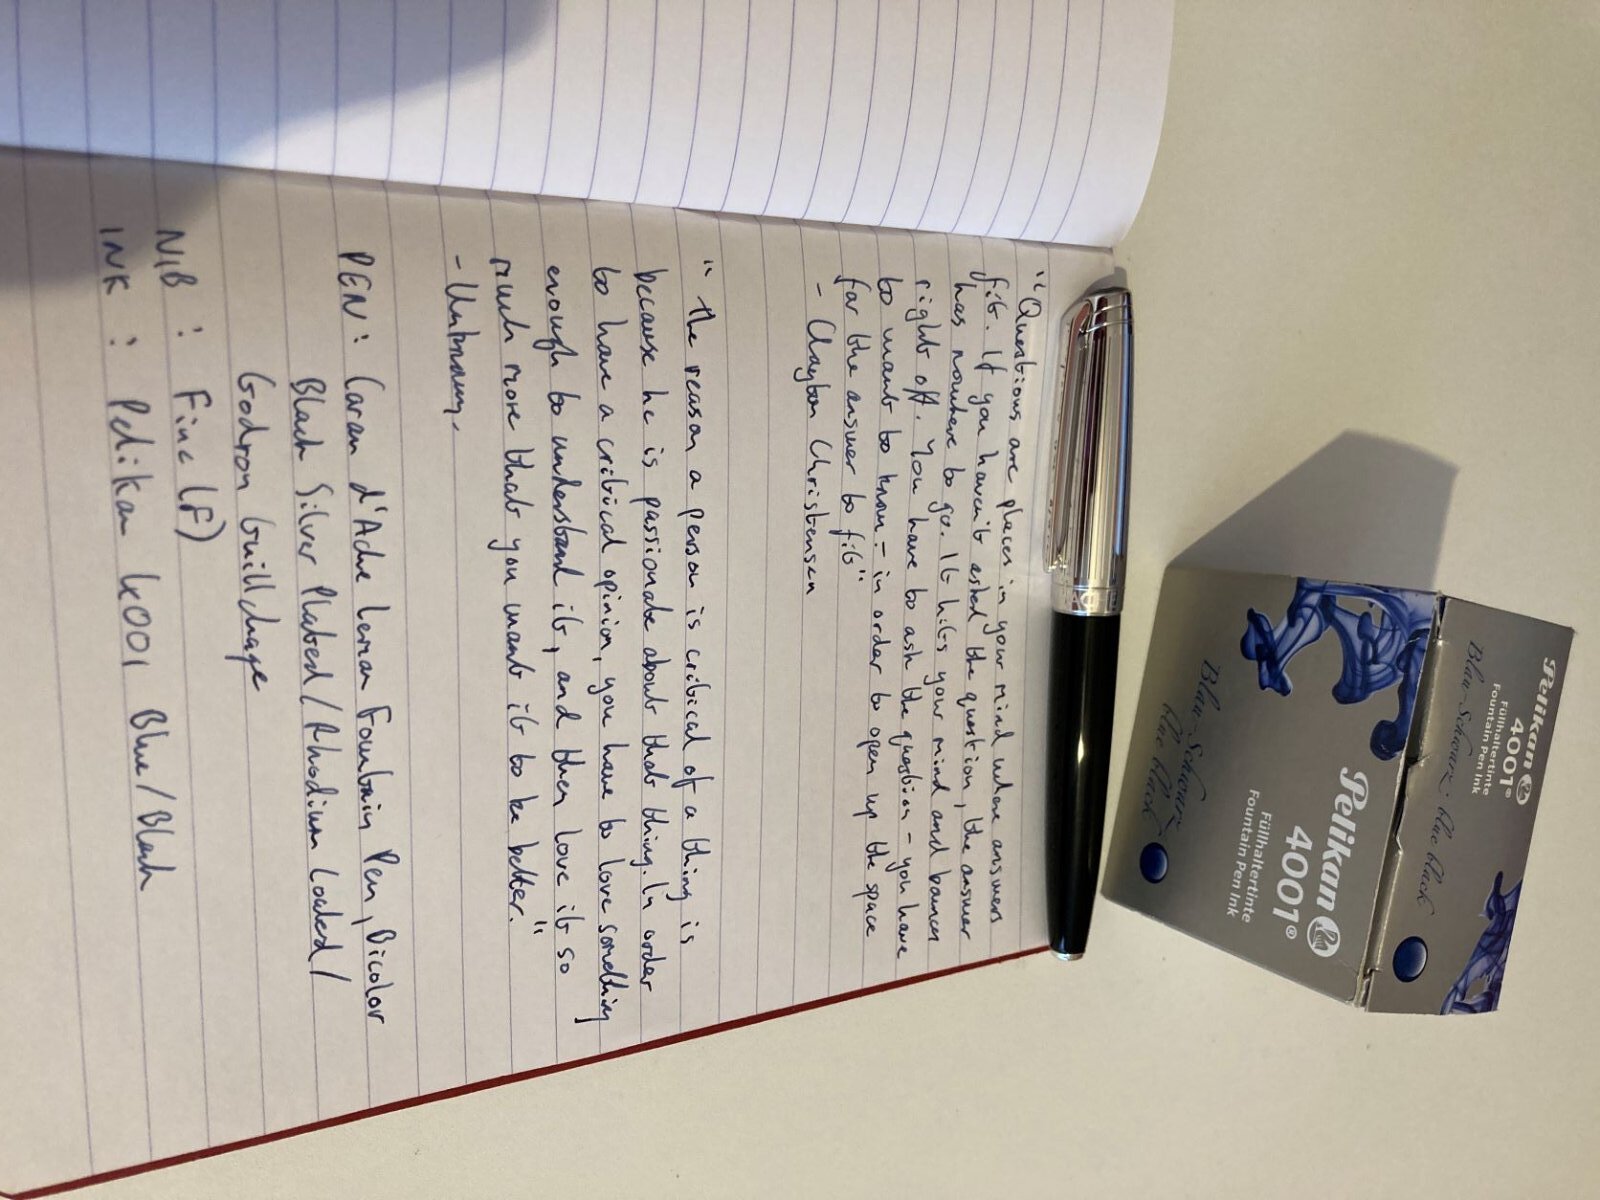 "Questions are places in your mind where answers
fit. If you haven't asked the question, the answer
has nowhere to go. It hits your mind and bounces
right off. You have to ask the question - you have
to want to know - in order to open up the space
for the answer to fit"
- Clayton Christensen
" The reason a person is critical of a thing is
because he is passionate about that thing. In order
to have a critical opinion, you have to love something
enough to understand it, and then love it so
much more that you want it to be better."
- Unknown.
PEN: Caran d'Ache Leman Fountain Pen, Bicolor
Black Silver Plated/Rhodium Coated/
Godron Guilldhage
NIB : Fine (F)
INK : Pelikan 4001 Blue/Black
Pelikan
4001®
Füllhaltertinte
Fountain Pen Ink
Blau-Schwarz blue black
Pelikan
4001®
Füllhaltertinte
Fountain Pen Ink
Blau-Schwarz
blue black